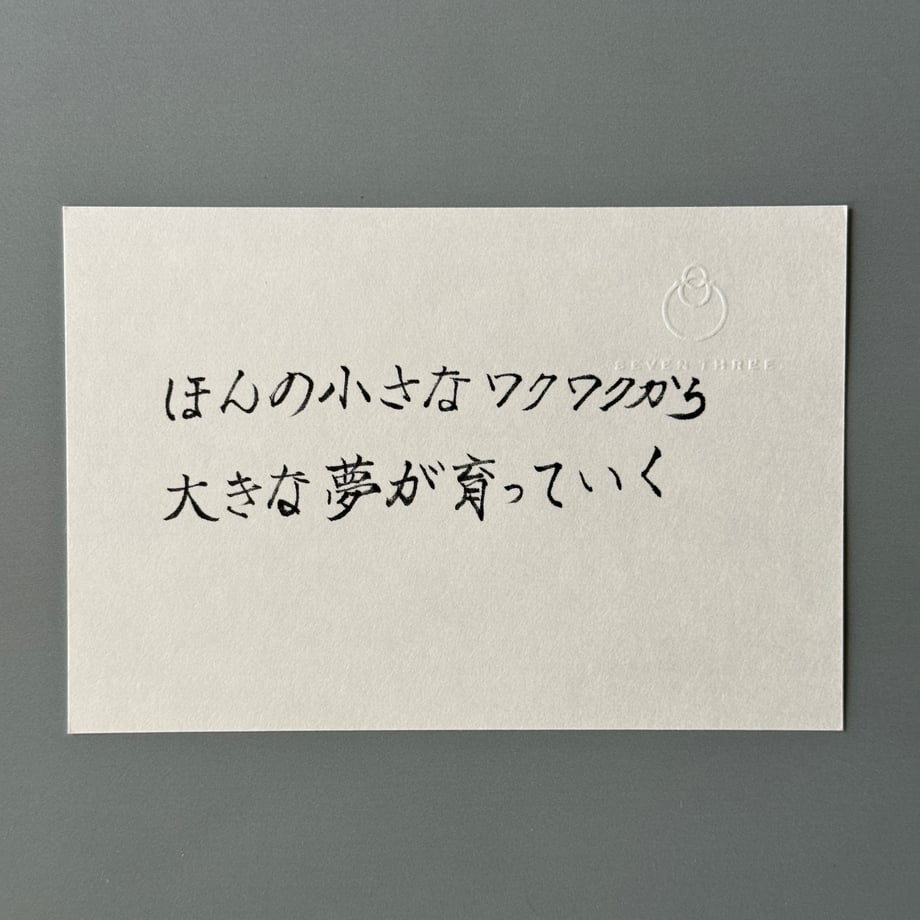 SEVEN THREE.
ほんの小さなワクワクから
大きな夢が育っていく